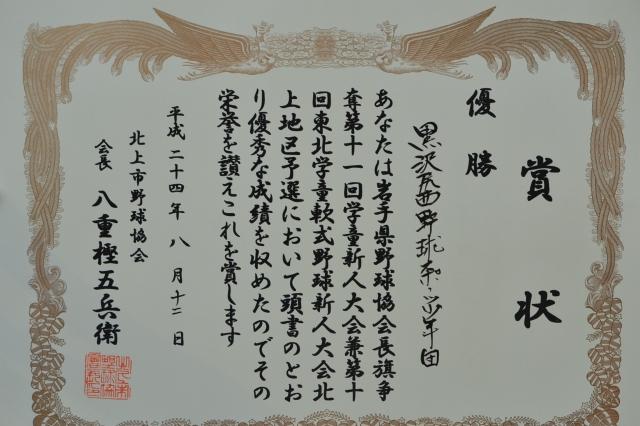 賞状
優勝
黒沢尻西野球スポーツ少年団
あなたは岩手県野球協会長旗争
奪第十一回学童新人大会兼第十
回東北学童軟式野球新人大会北
上地区予選において頭書のとお
り優秀な成績を収めたのでその
栄誉を讃えこれを賞します
平成二十四年八月十二日
北上市野球協会
会長 八重樫五兵衛